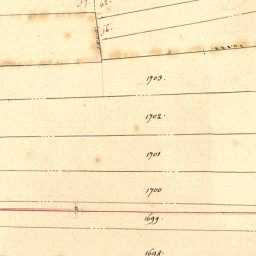 56.
1703.
1702.
1701
1700
1699.
1698